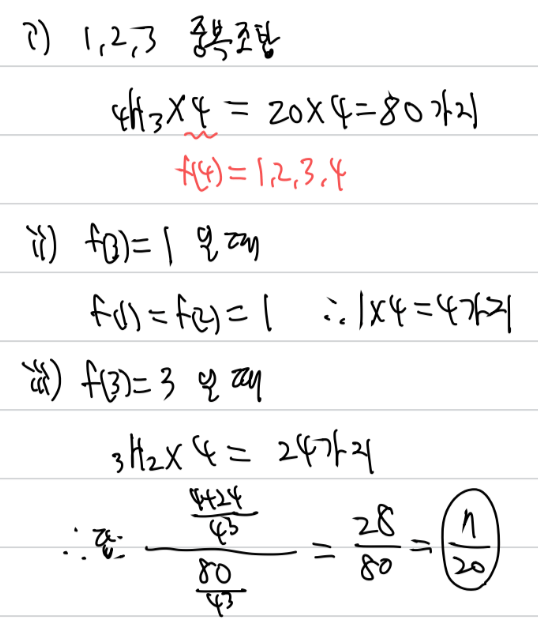 i) 1,2,3 중복조합
₄H₃×4 = 20×4=80가지
f(4)=1,2,3,4
ii) f(3)=1 일 때
f(1)=f(2)=1 ∴1×4=4가지
iii) f(3)=3 일 때
₃H₂×4 = 24가지
∴ 답: ((4+24)/4³)/(80/4³) = 28/80 = 7/20